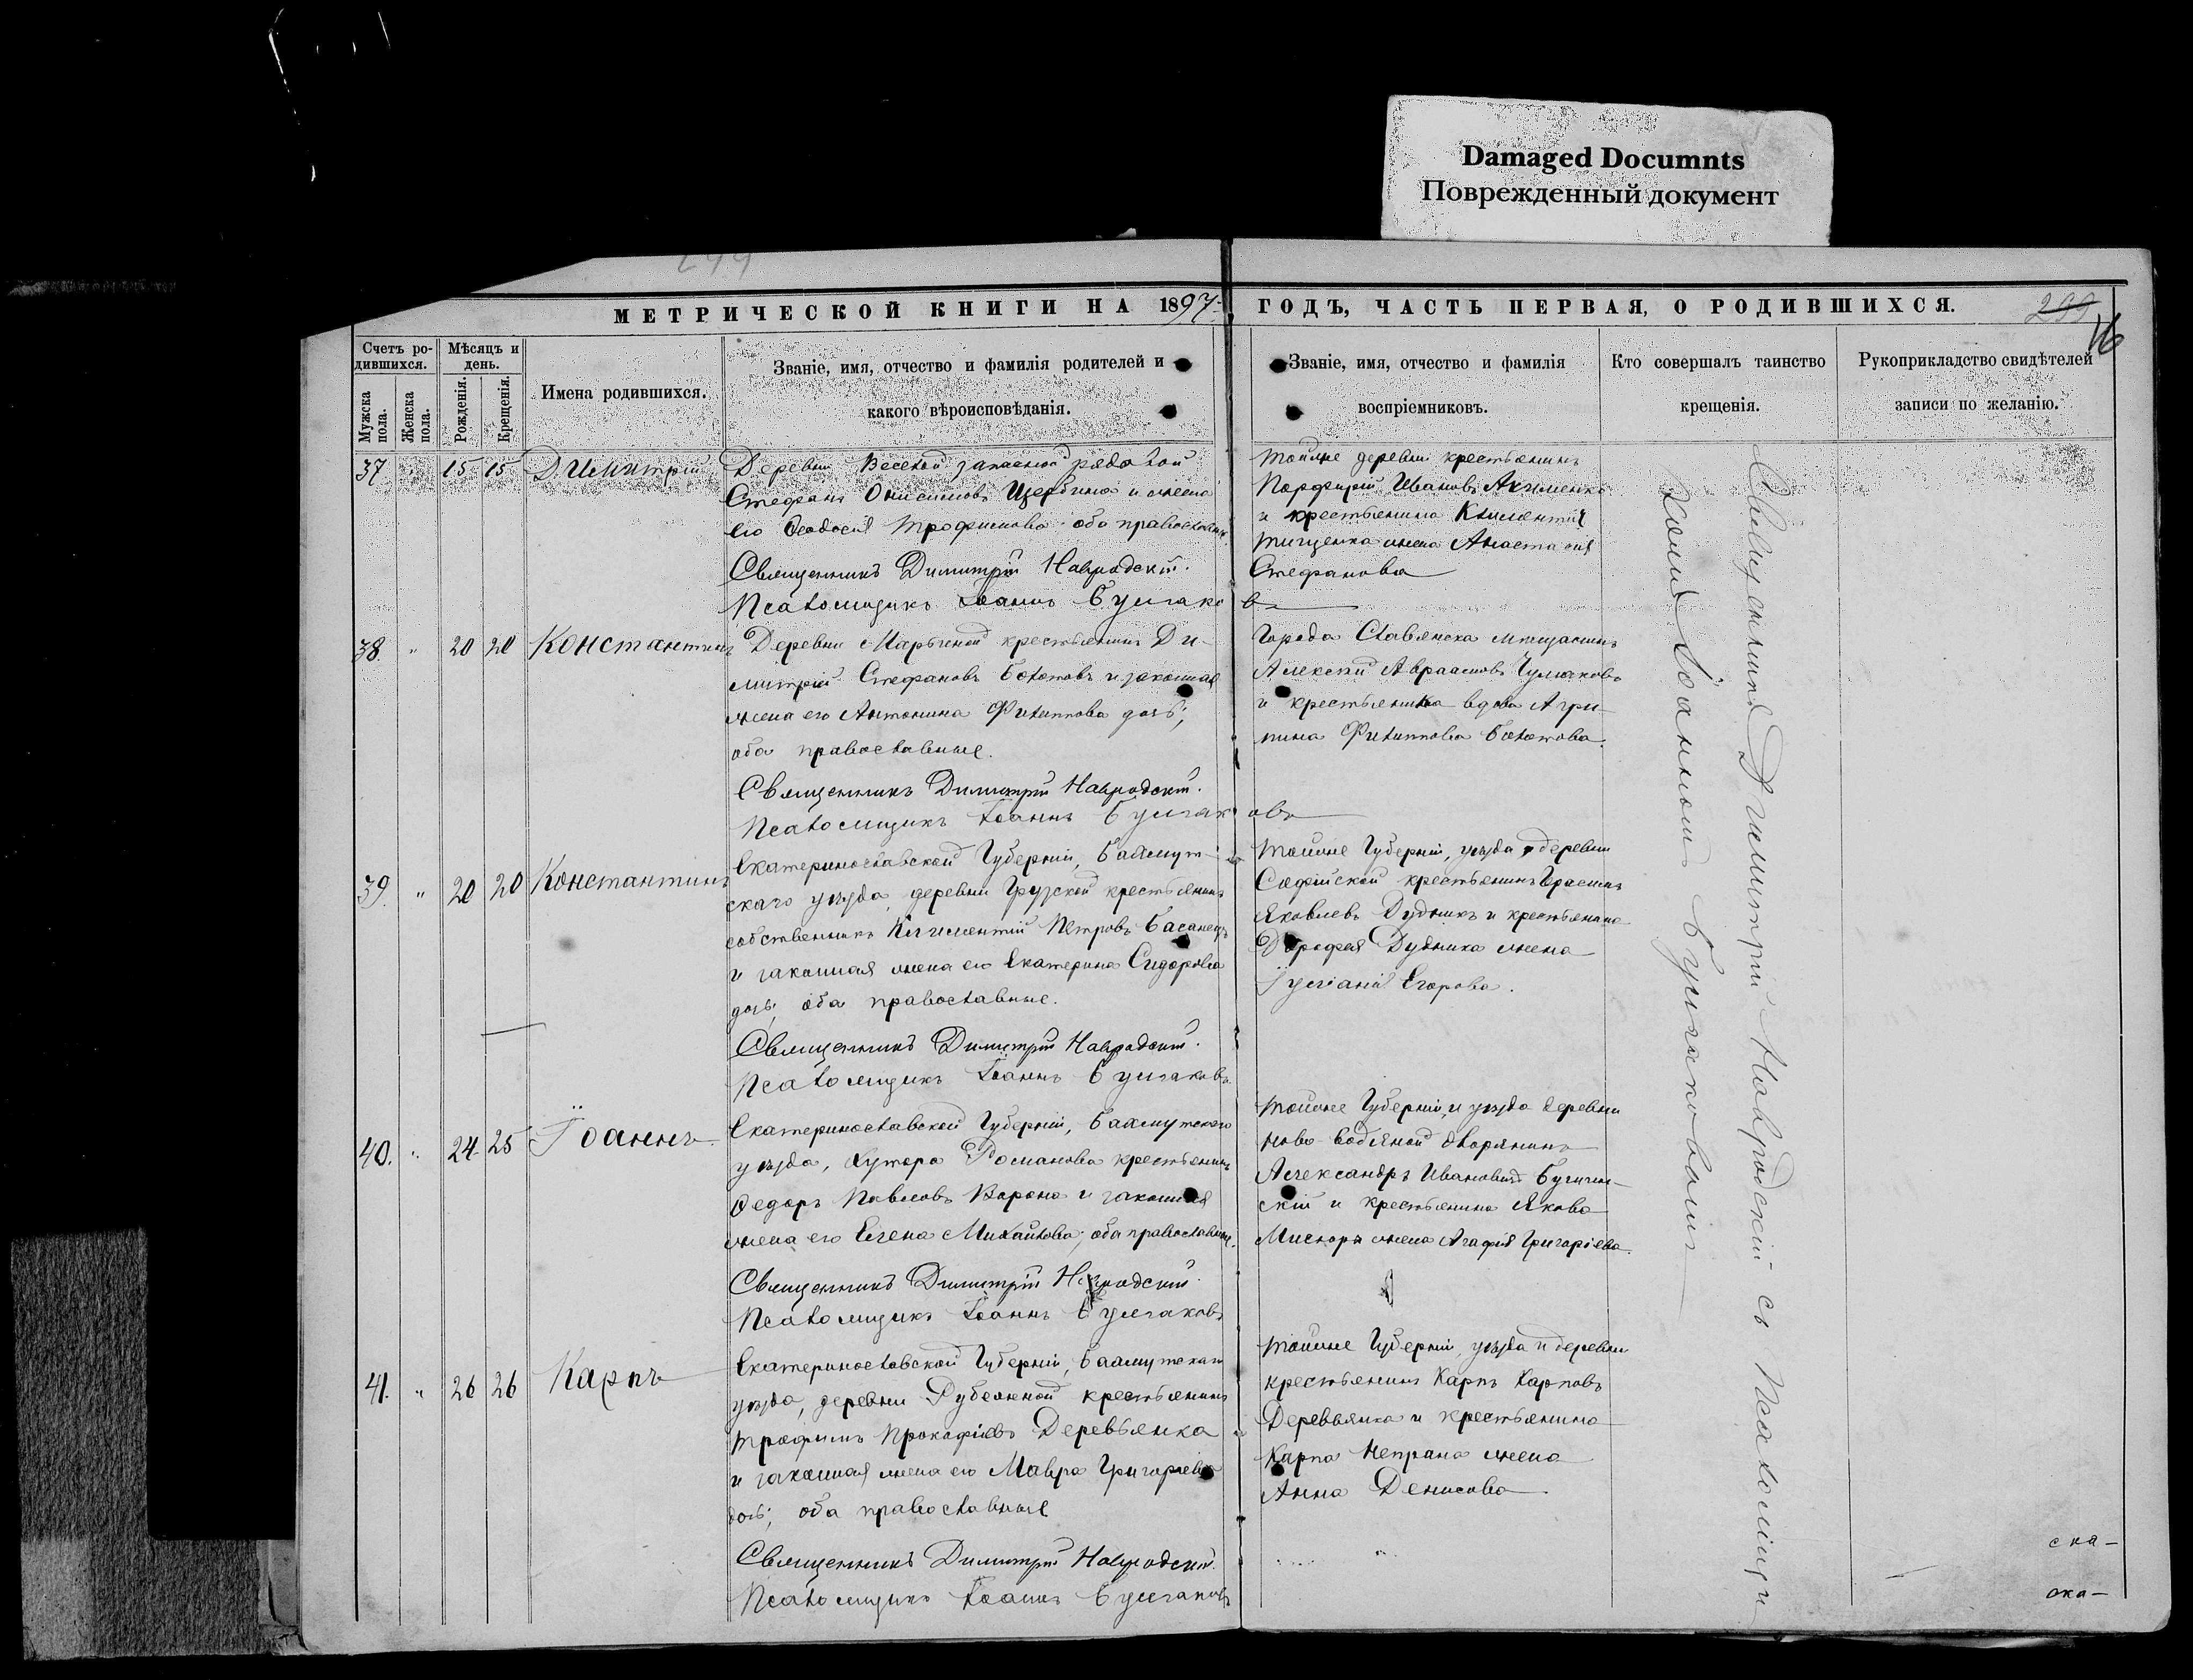 Damaged Documnts
Поврежденный документ
299
МЕТРИЧЕСКОЙ КНИГИ НА 1897 ГОДЪ, ЧАСТЬ ПЕРВАЯ, О РОДИВШИХСЯ.
299
16
Счетъ ро-
дившихся.
Мужска
пола.
Женска
пола.
Мѣсяцъ и
день.
Рожденія.
Крещенія.
Имена родившихся.
Званіе, имя, отчество и фамилія родителей и
какого вѣроисповѣданія.
Званіе, имя, отчество и фамилія
воспріемниковъ.
Кто совершалъ таинство
крещенія.
Рукоприкладство свидѣтелей
записи по желанію.
37 " 15 15 Димитрій
Деревни Веселой запасной рядовой
Стефанъ Онисимовъ Щербина и жена
его Ѳеодосія Трофимова оба православн.
Священникъ Димитрій Навродскій.
Псаломщикъ Іоаннъ Булгаковъ
Тойже деревни крестьянинъ
Порфирій Ивановъ Акименко
и крестьянина Климентія
Тищенка жена Анастасія
Стефанова
38. " 20 20 Константинъ
Деревни Марьиной крестьянинъ Ди-
митрій Стефановъ Болотовъ и законная
жена его Антонина Филиппова дочь;
оба православные.
Священникъ Димитрій Навродскій.
Псаломщикъ Іоаннъ Булгаковъ
Города Славянска мѣщанинъ
Алексѣй Авраамовъ Чумаковъ
и крестьянка вдова Агри-
пина Филиппова Болотова.
39. " 20 20 Константинъ
Екатеринославской Губерніи, Бахмут-
скаго уѣзда, деревни Грузской крестьянинъ
собственникъ Климентій Петровъ Басанецъ
и законная жена его Екатерина Сидорова
дочь; оба православные.
Священникъ Димитрій Навродскій.
Псаломщикъ Іоаннъ Булгаковъ
Тойже Губерніи, уѣзда деревни
Софійской крестьянинъ Герасимъ
Яковлевъ Дудникъ и крестьянина
Дорофея Дудника жена
Іуліанія Егорова.
40. " 24 25 Іоаннъ
Екатеринославской Губерніи, Бахмутскаго
уѣзда, хутора Романова крестьянинъ
Ѳедоръ Павловъ Ворона и законная
жена его Елена Михайлова; оба православные.
Священникъ Димитрій Навродскій.
Псаломщикъ Іоаннъ Булгаковъ
Тойже Губерніи, и уѣзда деревни
Ново-Водяной дворянинъ
Александръ Ивановичъ
скій и крестьянина Якова
жена Агафія Григоріева.
41. " 26 26 Карпъ
Екатеринославской Губерніи, Бахмутскаго
уѣзда, деревни Рубежной крестьянинъ
Трофимъ Прокофіевъ Деревьянка
и законная жена его Мавра Григоріева
дочь; оба православные
Священникъ Димитрій Навродскій.
Псаломщикъ Іоаннъ Булгаковъ
Тойже Губерніи, уѣзда и деревни
крестьянинъ Карпъ Карповъ
Деревьянка и крестьянина
Карпа Непрана жена
Анна Денисова.
Священникъ Димитрій Навродскій съ Псаломщи
комъ Іоанномъ Булгаковымъ
ска-
ока-